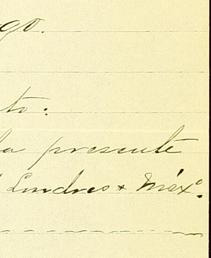 go.
to:
la presente
Londres & Méx.º